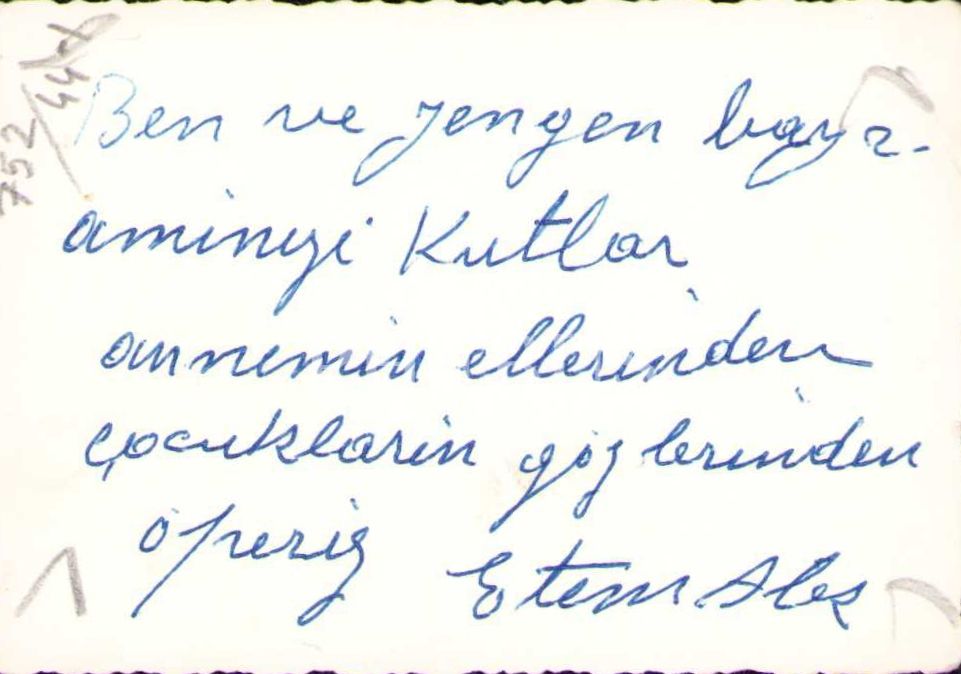 752/44
Ben ve yengen bayr-
aminizi Kutlar
annemin ellerinden
çocuklarin gözlerinden
öperiz Etem Ateş